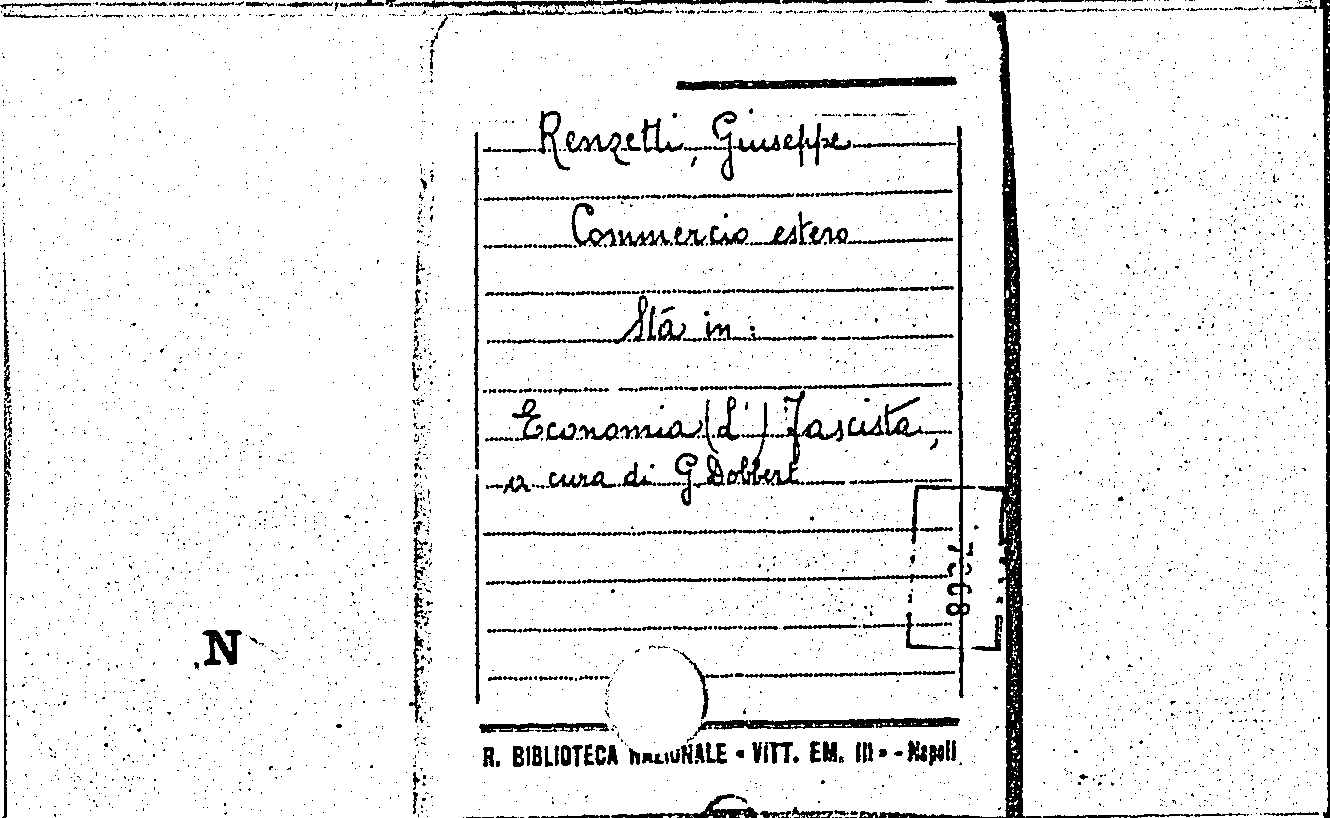 Renzetti, Giuseppe
Commercio estero
Stà in:
Economia (L') Fascista,
a cura di G. Dobbert
N
R. BIBLIOTECA NAZIONALE « VITT. EM. III » - Napoli